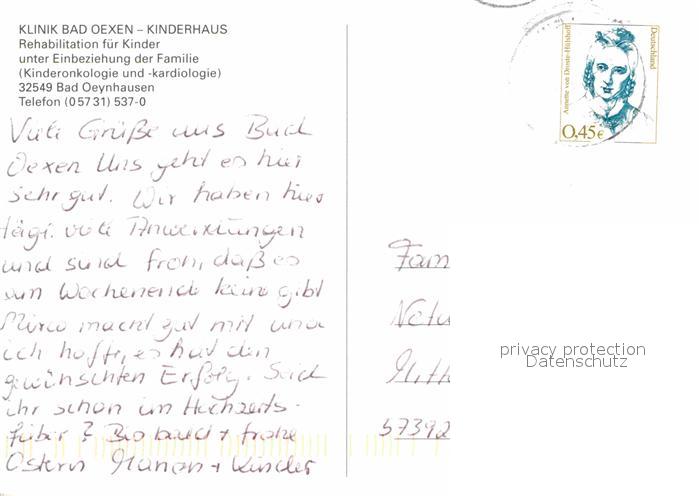 KLINIK BAD OEXEN – KINDERHAUS
Rehabilitation für Kinder
unter Einbeziehung der Familie
(Kinderonkologie und -kardiologie)
32549 Bad Oeynhausen
Telefon (0 57 31) 537-0
Viele Grüße aus Bad
Oexen Uns geht es hier
sehr gut. Wir haben hier
tägl. viele Anwendungen
und sind froh, daß es
am Wochenende keine gibt
Mirco macht gut mit und
ich hoffe, es hat den
gewünschten Erfolg. Seid
ihr schon im Hochzeits-
fieber? Bis bald + frohe
Ostern Manon + Kinder
Annette von Droste-Hülshoff
Deutschland
0,45€
Fam
57392
privacy protection
Datenschutz